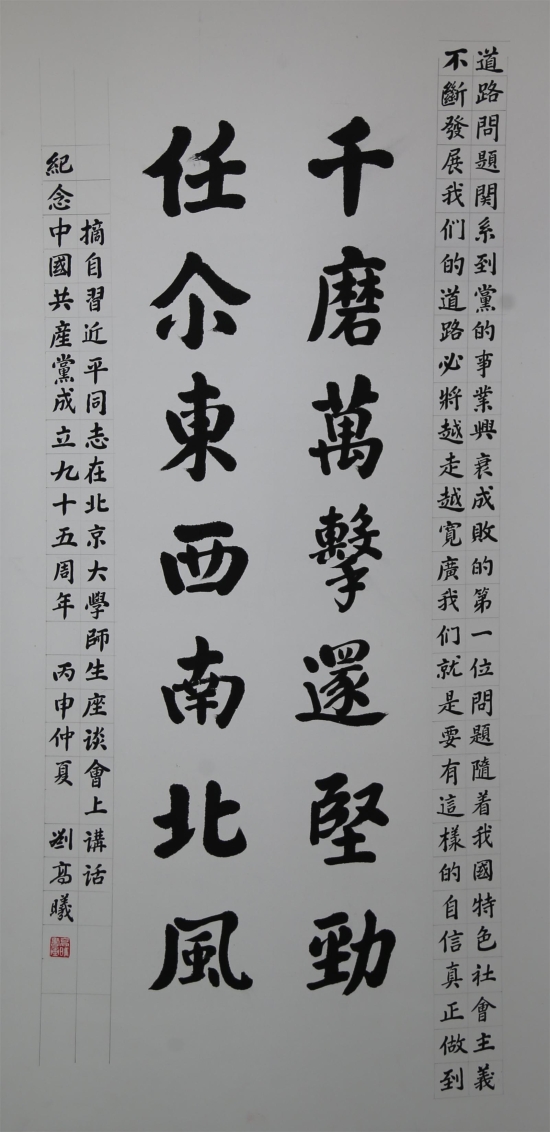 道路問題関系到黨的事業興衰成敗的第一位問題隨着我國特色社會主義
不斷發展我们的道路必將越走越寬廣我们就是要有這樣的自信真正做到
千磨萬擊還堅勁
任尒東西南北風
摘自習近平同志在北京大學師生座谈會上講话
紀念中國共産黨成立九十五周年 丙申仲夏 劉高曦